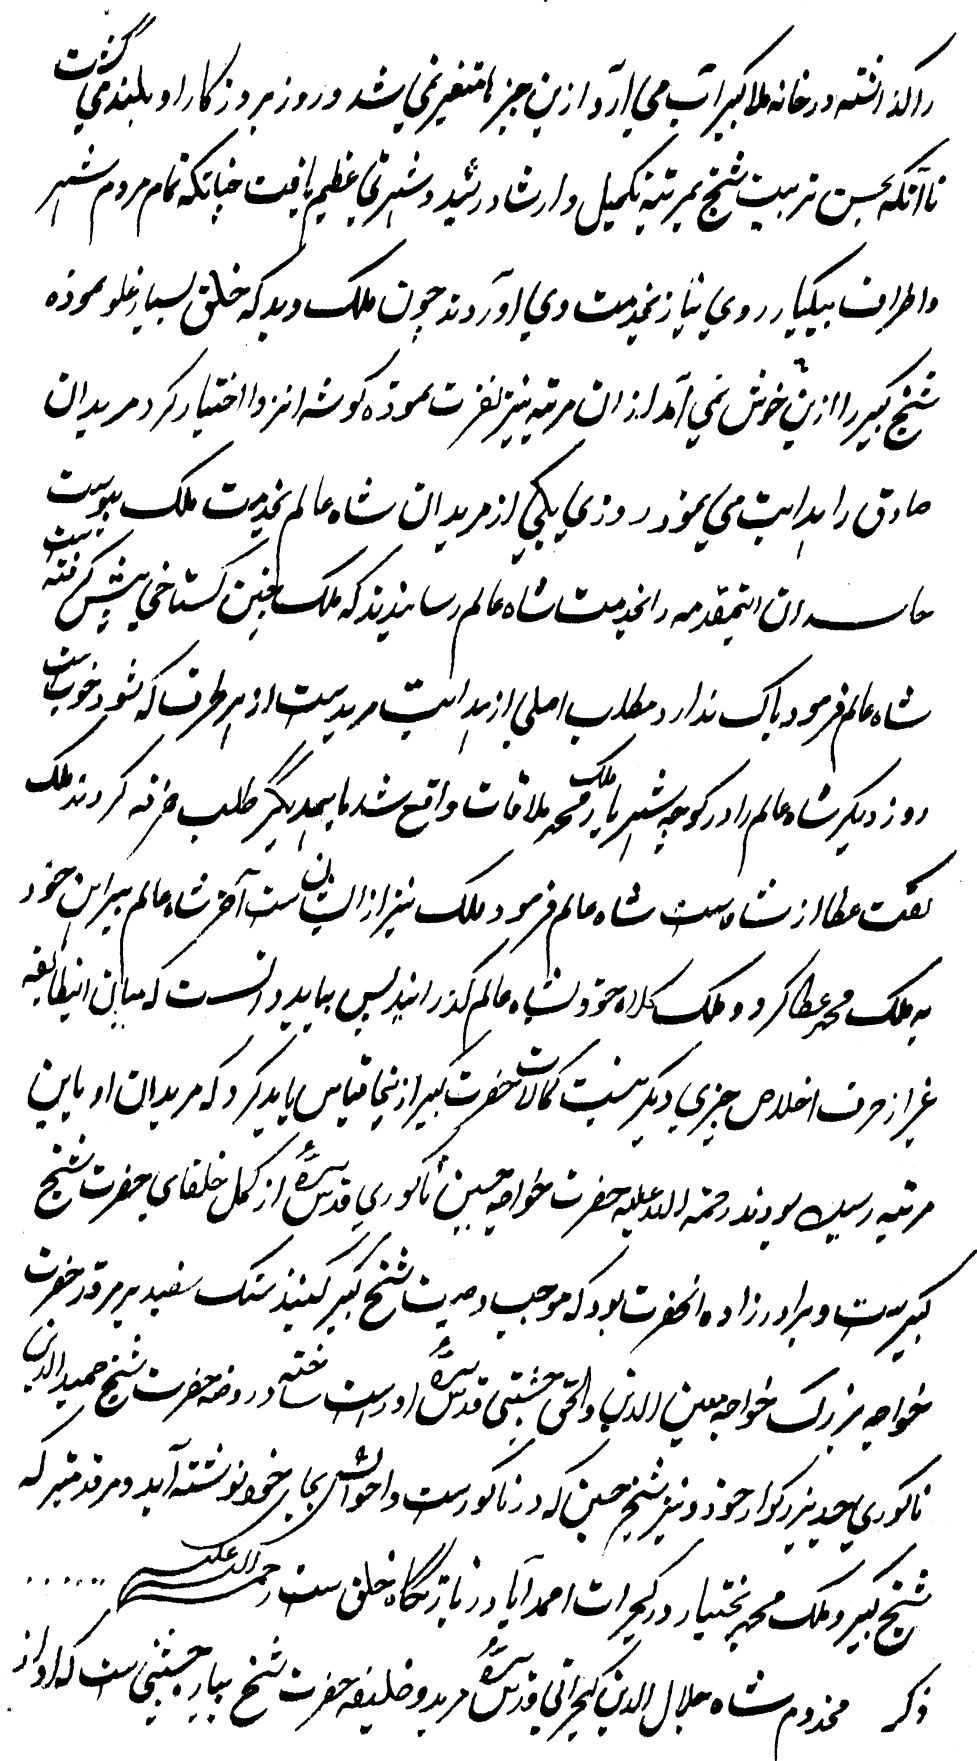 را گذاشته در خانه ملا کبیر آب می آرد ازین چیزها متغیر نمی شد و روز بروز کار او بلند می گشت
تا آنکه بحسن تربیت شیخ بمرتبه تکمیل و ارشاد رسید و شهرتی عظیم یافت چنانکه تمام مردم شهر
و اطراف بیکبار روی نیاز بخدمت وی آوردند چون ملک دید که خلق بسیار غلو نموده
شیخ کبیر را ازین خوش نمی آمد از ان مرتبه نیز نفرت نموده گوشه انزوا اختیار کرد مریدان
صادق را هدایت می نمود روزی یکی از مریدان شاه عالم بخدمت ملک پیوست
حاسدان اینمقدمه را بخدمت شاه عالم رسانیدند که ملک چنین گستاخی پیش گرفته است
شاه عالم فرمود باک ندارد مطلب اصلی از هدایت مریدست از هر طرف که شود خوبست
روز دیگر شاه عالم را در کوچه شهر با ملک محمد ملاقات واقع شد با همدیگر طلب خرقه کردند ملک
گفت عطا از شاه ست شاه عالم فرمود ملک نیز از ایشان ست آخر شاه عالم پیراهن خود
به ملک محمد عطا کرد و ملک کلاه خود بشاه عالم گذرانید پس بباید دانست که میان اینطایفه
غیر از حرف اخلاص چیزی دیگر نیست کمالات حضرت کبیر ازینجا قیاس باید کرد که مریدان او باین
مرتبه رسیده بودند رحمة الله علیه حضرت خواجه حسین ناگوری قدس سره از کمل خلفای حضرت شیخ
کبیرست و برادرزاده آنحضرت بود که موجب وصیت شیخ کبیر گنبذ سنگ سفید بر مرقد حضرت
خواجه بزرگ خواجه معین الدین والحق چشتی قدس سره او راست ساخته و روضه حضرت شیخ حمید الدین
ناگوری جد بزرگوار خود و نیز شیخ حسین که در ناگورست و احوالش بجای خود نوشته آید و مرقد متبرکه
شیخ کبیر و ملک محمد بختیار در گجرات احمدآباد زیارتگاه خلق ست رحمة الله علیه ......
ذکر مخدوم شاه جلال الدین گجراتی قدس سره مرید و خلیفه حضرت شیخ پیاره چشتی ست که او از